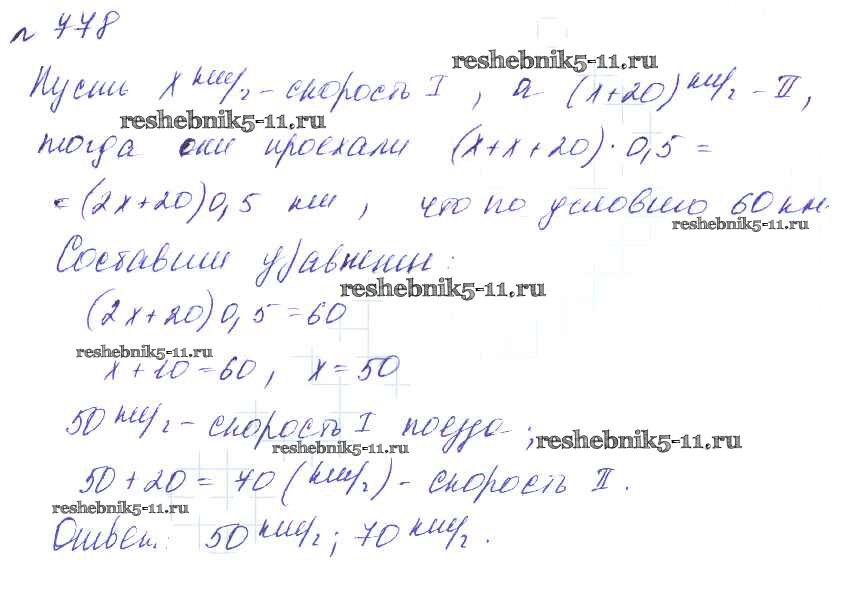 № 778
reshebnik5-11.ru
Пусть x км/ч - скорость I, а (x+20) км/ч - II,
reshebnik5-11.ru
тогда они проехали (x+x+20)·0,5 =
= (2x+20)0,5 км, что по условию 60 км.
reshebnik5-11.ru
Составим уравнение:
reshebnik5-11.ru
(2x+20)0,5=60
reshebnik5-11.ru
x+10=60, x=50
50 км/ч - скорость I поезда;
reshebnik5-11.ru
reshebnik5-11.ru
50+20=70 (км/ч) - скорость II.
reshebnik5-11.ru
Ответ: 50 км/ч; 70 км/ч.